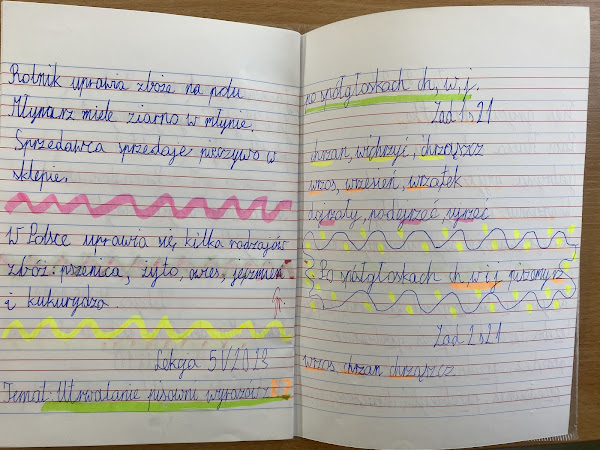 Rolnik uprawia zboże na polu
Młynarz miele ziarno w młynie.
Sprzedawca sprzedaje pieczywo w
sklepie.
W Polsce uprawia się kilka rodzajów
zbóż: pszenica, żyto, owies, jęczmień
i kukurydza.
Lekcja 51/2013
Temat: Utrwalanie pisowni wyrazów z rz
po spółgłoskach ch, w, j.
Zad 1 s 21
chrzan, wichrzyć, chrząszcz
wrzos, wrzesień, wrzątek
dojrzały, podejrzeć, ujrzeć
Po spółgłoskach ch, w i j piszemy rz
Zad 2 s 21
wrzos, chrzan chrząszcz